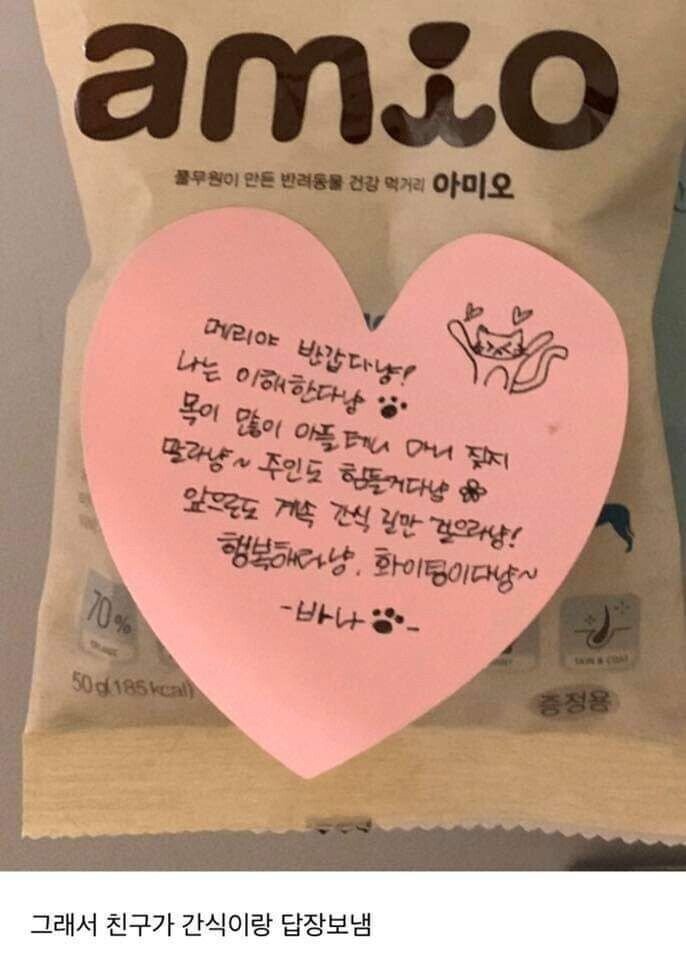 amio
풀무원이 만든 반려동물 건강 먹거리 아미오
메리야 반갑다냥!
나는 이해한다냥
목이 많이 아플테니 마니 짖지
말라냥~ 주인도 힘들거다냥
앞으론도 계속 간식 길만 걸으라냥!
행복해라냥. 화이팅이다냥~
-바나-
70%
50g(185kcal)
SKIN & COAT
증정용
그래서 친구가 간식이랑 답장보냄